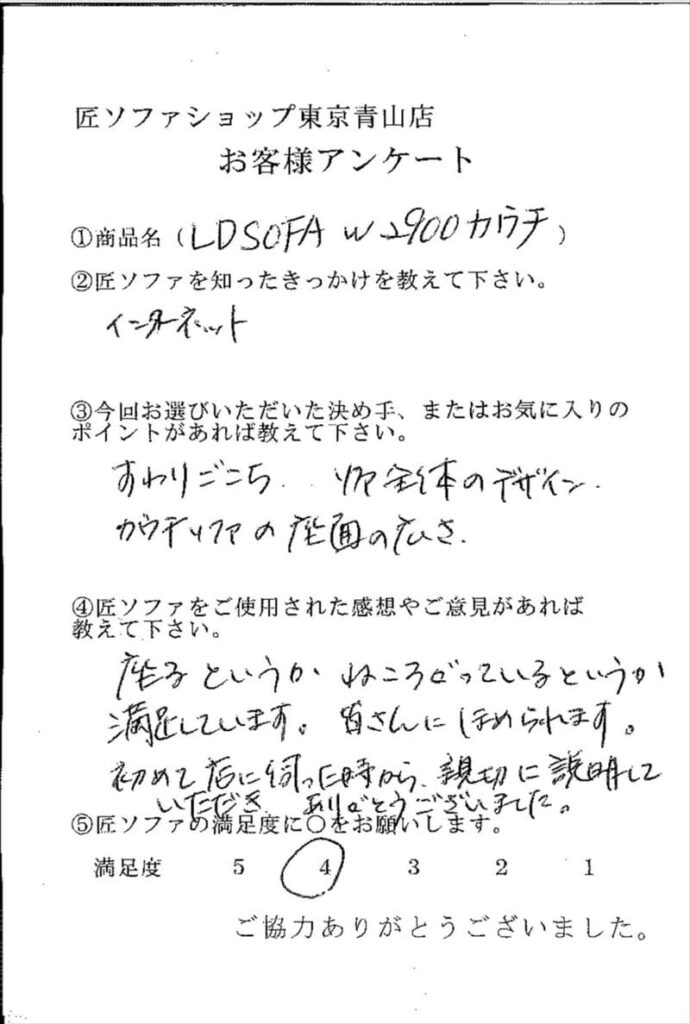 匠ソファショップ東京青山店
お客様アンケート
①商品名（LDSOFA W2900カウチ）
②匠ソファを知ったきっかけを教えて下さい。
インターネット
③今回お選びいただいた決め手、またはお気に入りの
ポイントがあれば教えて下さい。
すわりごこち. ソファ全体のデザイン.
カウチソファの座面の広さ.
④匠ソファをご使用された感想やご意見があれば
教えて下さい。
座るというか ねころがっているというか
満足しています。皆さんにほめられます。
初めて店に伺った時から、親切に説明して
いただき、ありがとうございました。
⑤匠ソファの満足度に○をお願いします。
満足度 5 4 3 2 1
ご協力ありがとうございました。